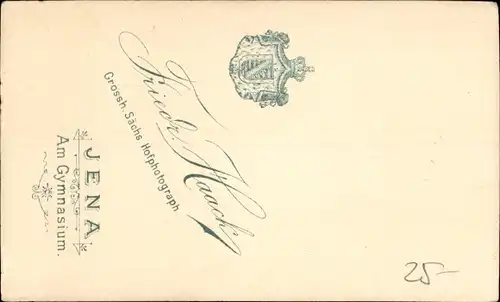 Friedr. Haack
Grossh. Sächs Hofphotograph
JENA
Am Gymnasium.
25-